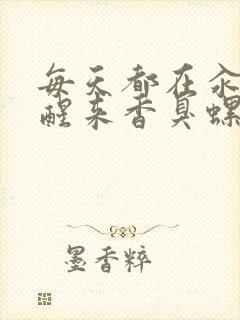 每天都在汆
醒来香臭螺
墨香粹